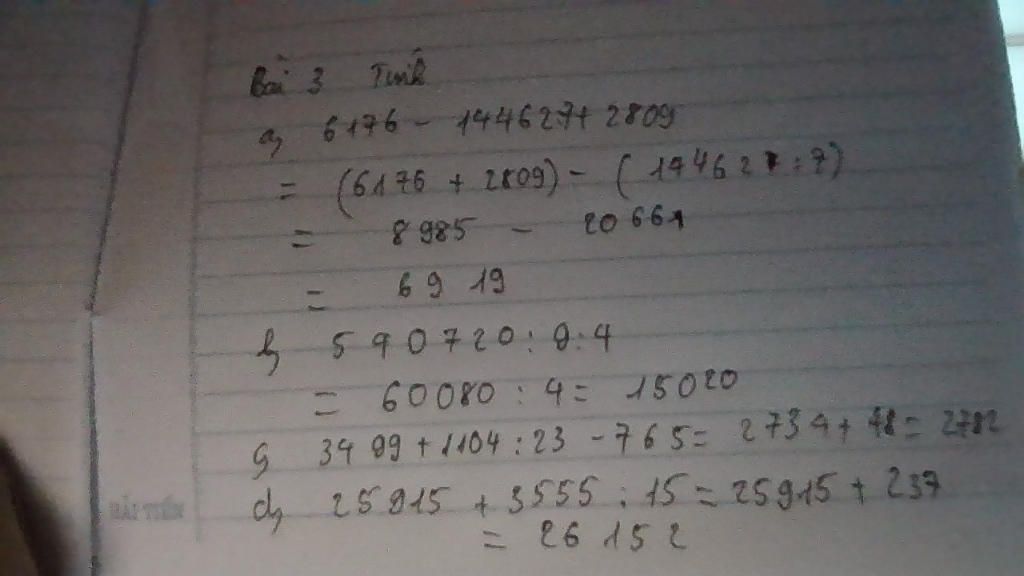 Bài 3 Tính
a, 6176 - 144627 + 2809
= (6176 + 2809) - ( 144627 : 7)
= 8985 - 20661
= 6919
b, 540720 : 9 : 4
= 60080 : 4 = 15020
c, 3499 + 1104 : 23 - 765 = 2734 + 48 = 2782
d, 25915 + 3555 : 15 = 25915 + 237
= 26152
HẢI TIẾN